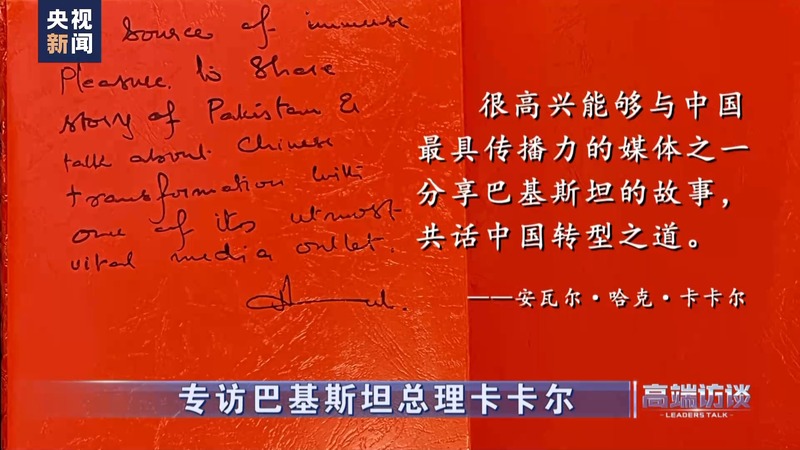 央视
新闻
source of immense
Pleasure to Share
story of Pakistan &
talk about Chinese
transformation with
one of its utmost
vital media outlet.
很高兴能够与中国
最具传播力的媒体之一
分享巴基斯坦的故事，
共话中国转型之道。
——安瓦尔·哈克·卡卡尔
专访巴基斯坦总理卡卡尔
高端访谈
LEADERS TALK